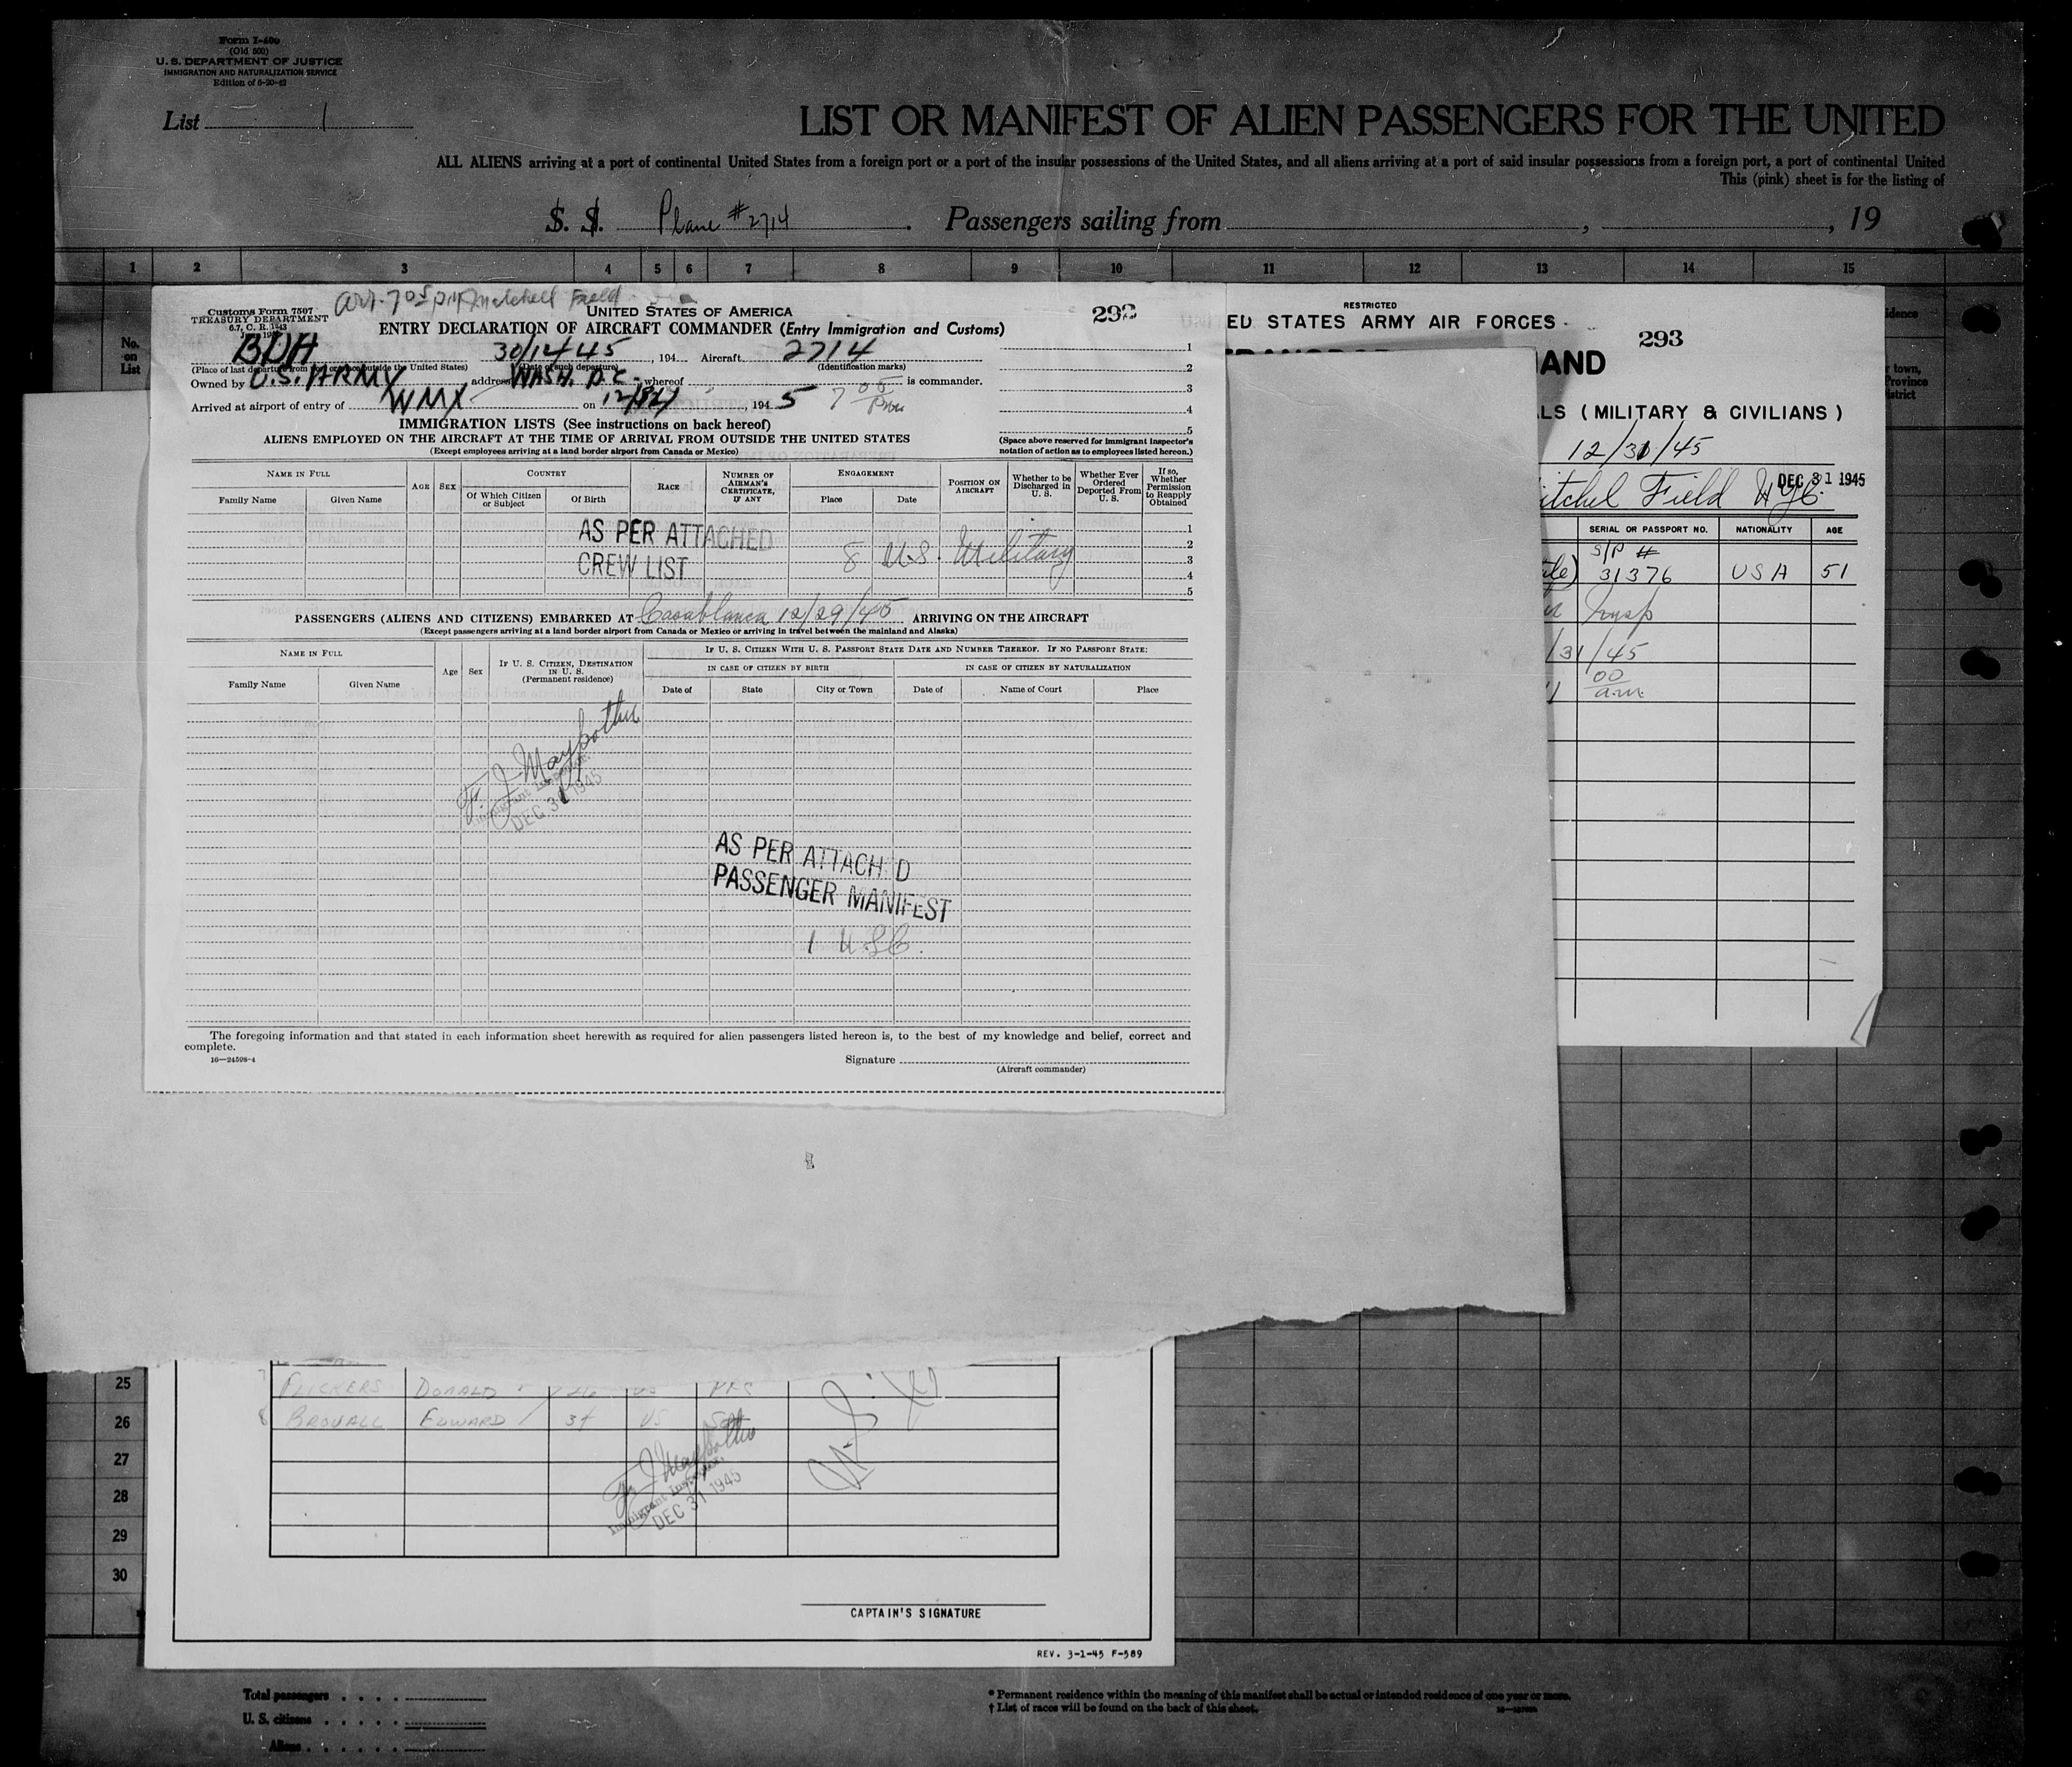 Form I-400
(Old 500)
U. S. DEPARTMENT OF JUSTICE
IMMIGRATION AND NATURALIZATION SERVICE
Edition of 6-20-42
List 1
LIST OR MANIFEST OF ALIEN PASSENGERS FOR THE UNITED
ALL ALIENS arriving at a port of continental United States from a foreign port or a port of the insular possessions of the United States, and all aliens arriving at a port of said insular possessions from a foreign port, a port of continental United
This (pink) sheet is for the listing of
S. S. Plane #2714 . Passengers sailing from , , 19
1 2 3 4 5 6 7 8 9 10 11 12 13 14 15
No.
on
List
Arr. 7 05 PM Mitchell Field
Customs Form 7507
TREASURY DEPARTMENT
6.7, C. R. 1943
UNITED STATES OF AMERICA
292
ENTRY DECLARATION OF AIRCRAFT COMMANDER (Entry Immigration and Customs)
BDA 30/1445 , 194 Aircraft 2714
(Place of last departure from outside the United States) (Date of such departure) (Identification marks)
Owned by U.S. ARMY address WASH. D.C. whereof is commander.
Arrived at airport of entry of WMX on 12/ , 194 5 7 05 Pm
1
2
3
4
5
IMMIGRATION LISTS (See instructions on back hereof)
ALIENS EMPLOYED ON THE AIRCRAFT AT THE TIME OF ARRIVAL FROM OUTSIDE THE UNITED STATES
(Except employees arriving at a land border airport from Canada or Mexico)
(Space above reserved for Immigrant Inspector's
notation of action as to employees listed hereon.)
NAME IN FULL
Family Name Given Name
AGE SEX
COUNTRY
Of Which Citizen or Subject Of Birth
RACE
NUMBER OF AIRMAN'S CERTIFICATE, IF ANY
ENGAGEMENT
Place Date
POSITION ON AIRCRAFT
Whether to be Discharged in U. S.
Whether Ever Ordered Deported From U. S.
If so, Whether Permission to Reapply Obtained
AS PER ATTACHED
CREW LIST
8 U.S. Military
1
2
3
4
5
PASSENGERS (ALIENS AND CITIZENS) EMBARKED AT Casablanca 12/29/45 ARRIVING ON THE AIRCRAFT
(Except passengers arriving at a land border airport from Canada or Mexico or arriving in travel between the mainland and Alaska)
NAME IN FULL
Family Name Given Name
Age Sex
IF U. S. CITIZEN, DESTINATION IN U. S.
(Permanent residence)
IF U. S. CITIZEN WITH U. S. PASSPORT STATE DATE AND NUMBER THEREOF. IF NO PASSPORT STATE:
IN CASE OF CITIZEN BY BIRTH IN CASE OF CITIZEN BY NATURALIZATION
Date of State City or Town Date of Name of Court Place
F. J. Maypother
Immigrant Inspector
DEC 31 1945
AS PER ATTACH D
PASSENGER MANIFEST
1 U.S.C.
The foregoing information and that stated in each information sheet herewith as required for alien passengers listed hereon is, to the best of my knowledge and belief, correct and
complete.
16—24598-4
Signature
(Aircraft commander)
RESTRICTED
ED STATES ARMY AIR FORCES
293
AND
LS (MILITARY & CIVILIANS)
12/31/45
DEC 31 1945
itchel Field NYC.
SERIAL OR PASSPORT NO. NATIONALITY AGE
S/P #
31376 USA 51
Insp
/31/45
00
a.m.
idence
town,
Province
istrict
25
26
27
28
29
30
FLICKERS DONALD 26 US PFC
8 BROUALL EDWARD 34 US
F. J. Maypother
Immigrant Inspector
DEC 31 1945
CAPTAIN'S SIGNATURE
REV. 3-1-45 F-589
Total passengers
U. S. citizens
Aliens
* Permanent residence within the meaning of this manifest shall be actual or intended residence of one year or more.
† List of races will be found on the back of this sheet.